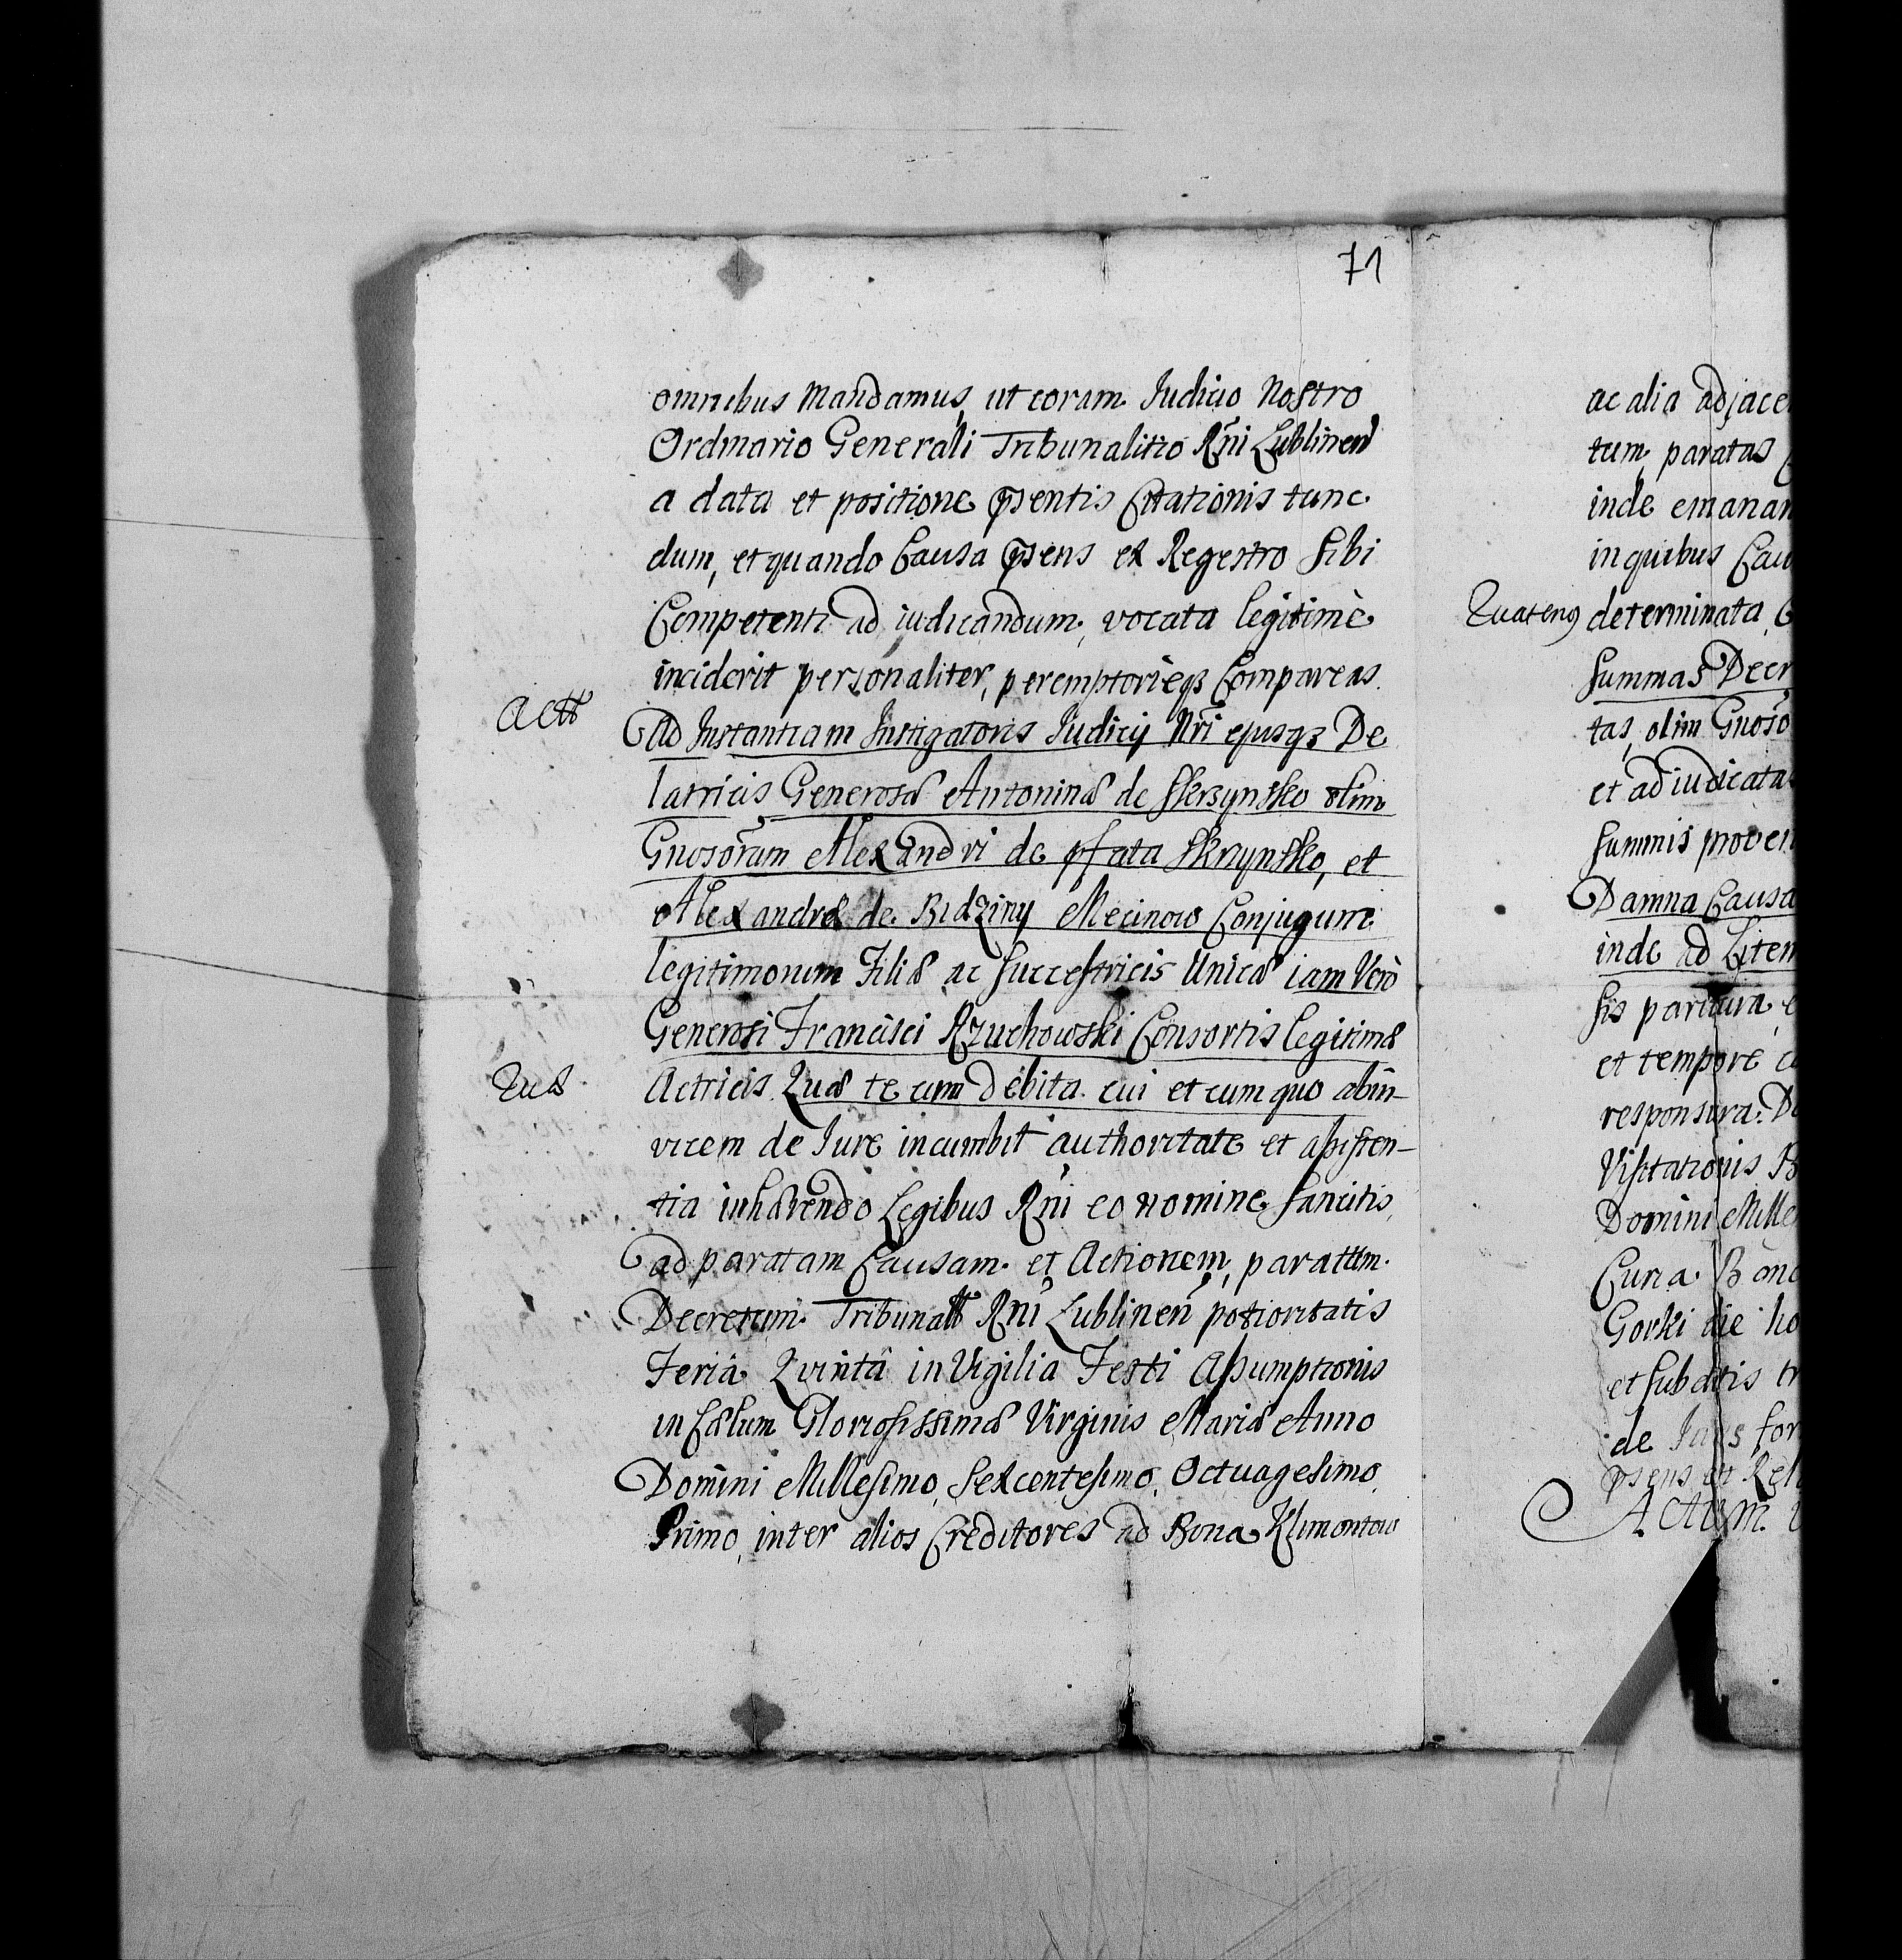 71
omnibus Mandamus, ut coram Iudicio Nostro
Ordinario Generali Tribunalitio Rñi Lublinen
a data et positione pñsentis Citationis tunc
dum, et quando Causa pñsens ex Regestro sibi
Competenti ad iudicandum, vocata legitimè
inciderit personaliter, peremptorieqз Compareas.
Actt
Ad Instantiam Instigatoris Iudicij Nri ejusqз De
latricis Generosæ Antoninæ de Skrzynsko olim
Gnosorum Alexandri de pfata Skrzynsko, et
Alexandræ de Bidziny Mecinow Conjugum
legitimorum Filiæ ac Successtricis Unicæ iam Verò
Generosi Francisci Rzuchowski Consortis legitimæ
Quæ
Actricis Quæ te cum debita cui et cum quo abin-
vicem de Iure incumbit authoritate et assisten-
tia inhærendo Legibus Rñi eo nomine sancitis,
ad paratam Causam et Actionem, paratum
Decretum Tribunalt Rñi Lublineñ potioritatis
Feriâ Qvintâ in Vigilia Festi Assumptionis
in Cælum Gloriosissimæ Virginis Mariæ Anno
Domini Millesimo, Sexcentesimo, Octuagesimo
Primo, inter alios Creditores ad Bona Klimontow
ac alia adjace
tum, paratas
inde emanan
in quibus Cau
Quatenus determinata
summas Decr
tas, olim Gnoso
et adiudicata
summis proven
Damna Causa
inde ad Litem
sis paritura
et tempore
responsura. D
Visitationis
Domini Mille
Curia Bono
Gorki die ho
et subditis tr
de for
psens Rel
Actum